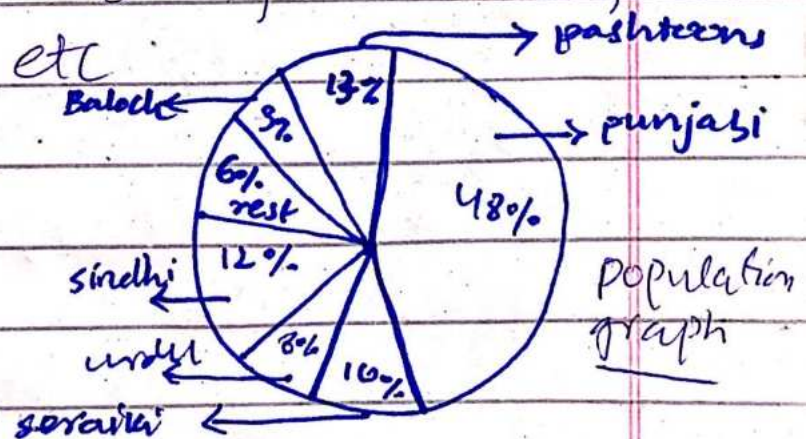 etc
pashtoons
Baloch
13%
punjabi
3%
6%
rest
48%
12%
sindhi
population
graph
urdu
8%
10%
seraiki